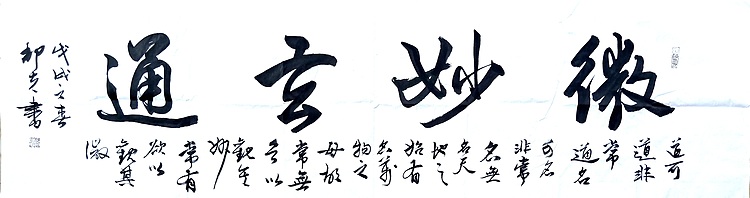 微妙玄通
道可
道非
常
道名
可名
非常
名無
名天
地之
始有
名萬
物之
母故
常無
欲以
觀其
妙
常有
欲以
觀其
徼
戊戌之春
書